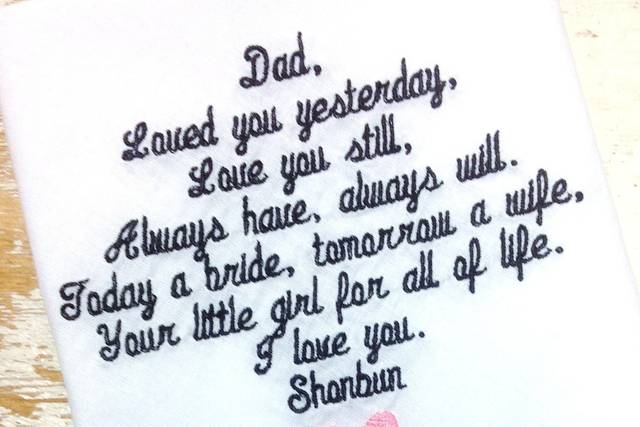 Dad,
Loved you yesterday,
Love you still,
Always have, always will.
Today a bride, tomorrow a wife,
Your little girl for all of life.
I love you.
Shanbun